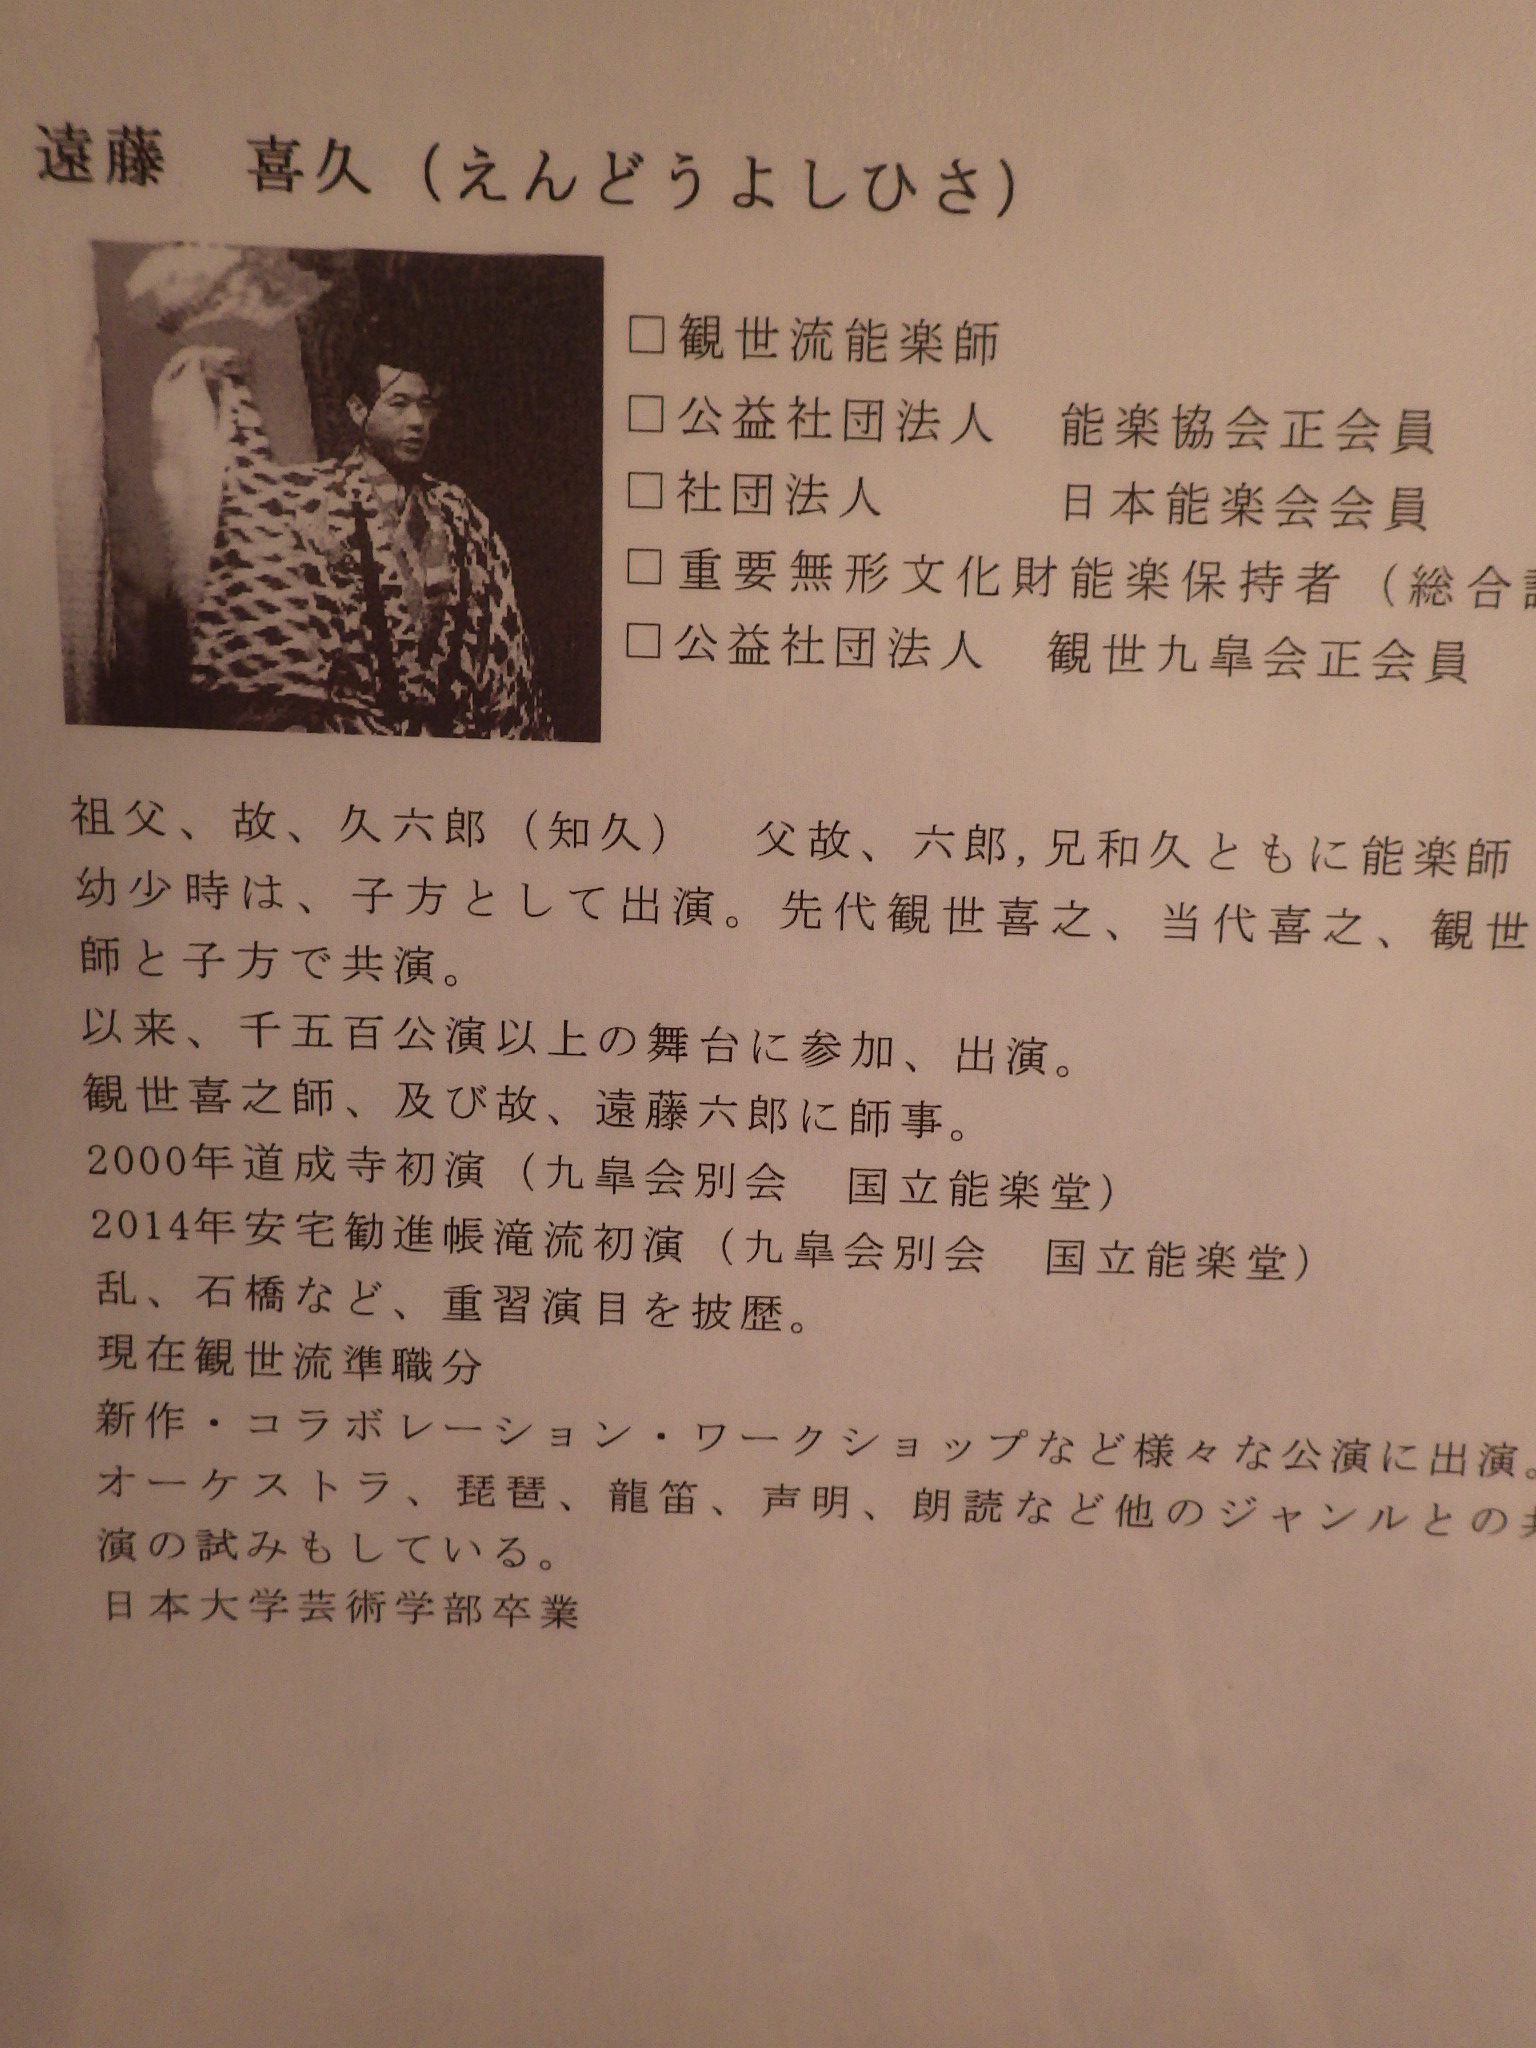 遠藤　喜久（えんどうよしひさ）
□観世流能楽師
□公益社団法人　能楽協会正会員
□社団法人　　　日本能楽会会員
□重要無形文化財能楽保持者（総合
□公益社団法人　観世九皐会正会員
祖父、故、久六郎（知久）　父故、六郎,兄和久ともに能楽師
幼少時は、子方として出演。先代観世喜之、当代喜之、観世
師と子方で共演。
以来、千五百公演以上の舞台に参加、出演。
観世喜之師、及び故、遠藤六郎に師事。
2000年道成寺初演（九皐会別会　国立能楽堂）
2014年安宅勧進帳滝流初演（九皐会別会　国立能楽堂）
乱、石橋など、重習演目を披歴。
現在観世流準職分
新作・コラボレーション・ワークショップなど様々な公演に出演。
オーケストラ、琵琶、龍笛、声明、朗読など他のジャンルとの
演の試みもしている。
日本大学芸術学部卒業